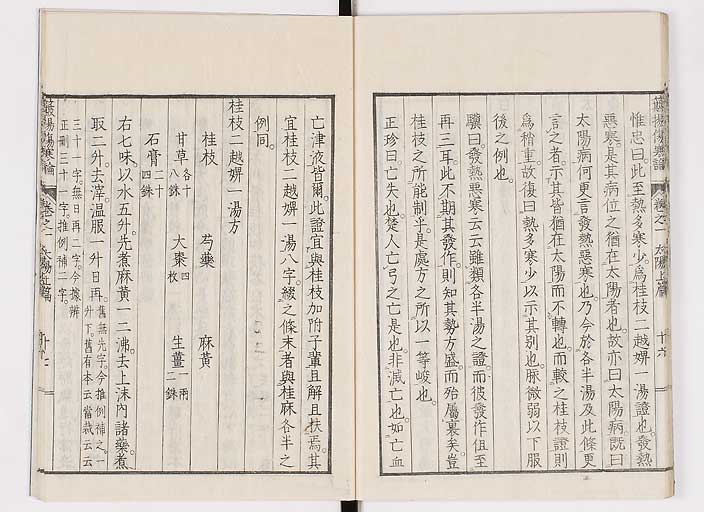 惟忠曰。此至熱多寒少。爲桂枝二越婢一湯證也。發熱
惡寒。是其病位之猶在太陽者也。故亦曰太陽病。既曰
太陽病。何更言發熱惡寒也。乃今於各半湯及此條。更
言之者。示其皆猶在太陽而不轉也。而較之桂枝證。則
爲稍重。故復曰熱多寒少。以示其別也。脈微弱以下。服
後之例也。
驥曰。發熱惡寒云云。雖類各半湯之證。而彼發作伍至
再三耳。此不期其發作。則知其勢方盛。而殆屬裏矣。豈
桂枝之所能制乎。是處方之所以一等峻也。
正珍曰。亡失也。楚人亡弓之亡是也。非滅亡也。如亡血
太陽上篇
十六
亡津液皆爾。此證宜與桂枝加附子輩。且解且扶焉。其
宜桂枝二越婢一湯八字。綴之條末者。與桂麻各半之
例同。
桂枝二越婢一湯方
桂枝 芍藥 麻黃
甘草各十八銖 大棗四枚 生薑一兩二銖
石膏二十四銖
右七味。以水五升。先煮麻黃一二沸。去上沫。內諸藥。煮
取二升。去滓。溫服一升。日再。舊無先字。今推例補之。一升下。舊有本云當裁云云
三十一字。無日再二字。今據辨
正刪三十一字。推例補二字。
卷之一